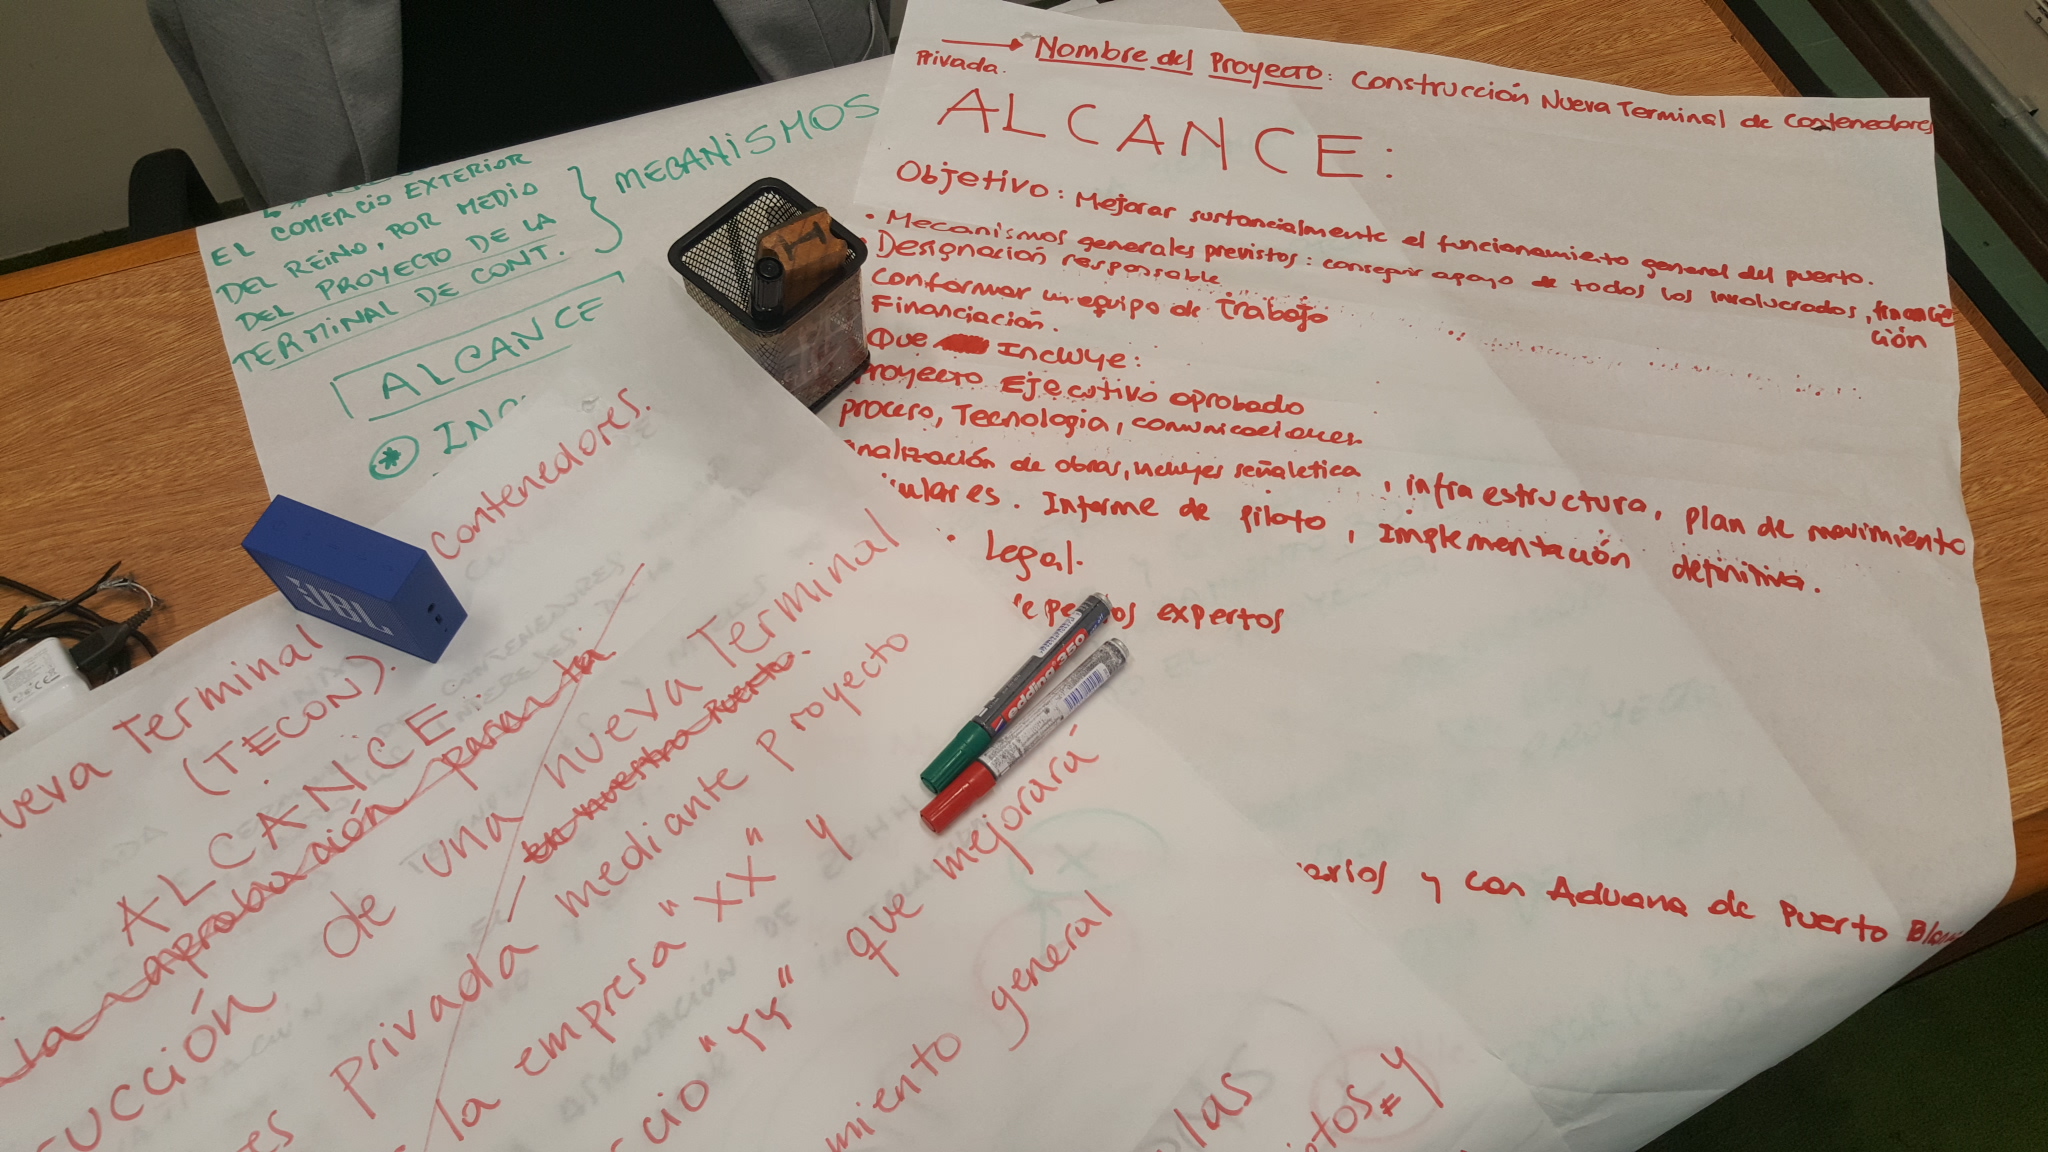 → Nombre del Proyecto: Construcción Nueva Terminal de Contenedores
Privada.
ALCANCE:
Objetivo: Mejorar sustancialmente el funcionamiento general del puerto.
• Mecanismos generales previstos: conseguir apoyo de todos los involucrados, financia
ción
• Designación responsable
Conformar un equipo de trabajo
Financiación.
Que Incluye:
Proyecto Ejecutivo aprobado
proceso, Tecnologia, comunicaciones
nalización de obras, incluyes señaletica, infraestructura, plan de movimiento
iculares. Informe de piloto, implementación definitiva.
• Legal.
expertos
arios y con Aduana de Puerto
EL COMERCIO EXTERIOR
DEL REINO, POR MEDIO
DEL PROYECTO DE LA
TERMINAL DE CONT.
MECANISMOS
ALCANCE
* INC
Contenedores.
ueva Terminal
(TECON).
ALCANCE:
aprobación para la
UCCIÓN de una nueva Terminal
en nuestro Puerto.
es privada mediante proyecto
la empresa "XX" y
cio "YY" que mejorará
miento general
las
ptos y
JBL
edding 350